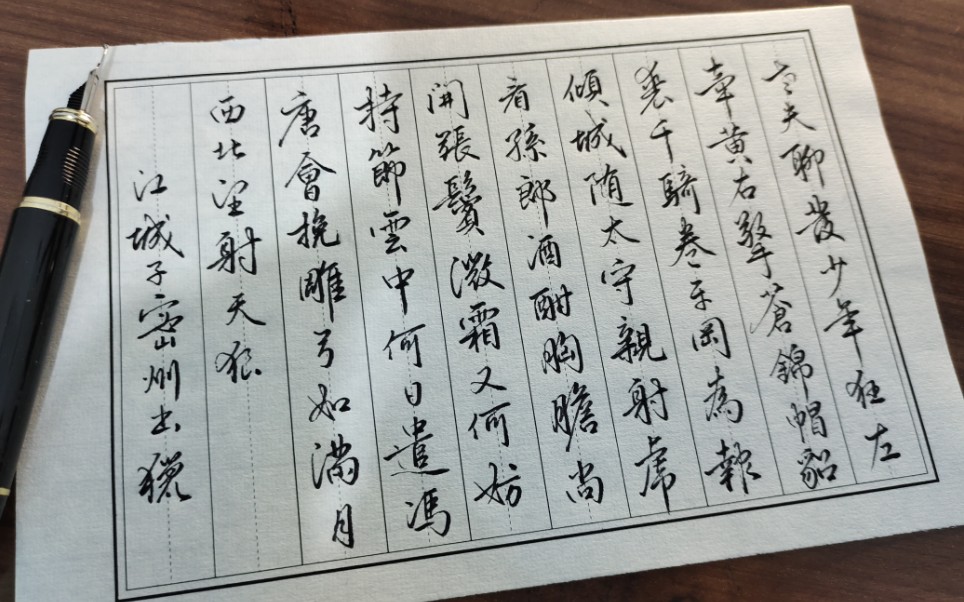 老夫聊發少年狂左
牽黄右擎蒼錦帽貂
裘千騎卷平岡為報
傾城随太守親射虎
看孫郎酒酣胸膽尚
開張鬢微霜又何妨
持節雲中何日遣馮
唐會挽雕弓如滿月
西北望射天狼
江城子密州出獵